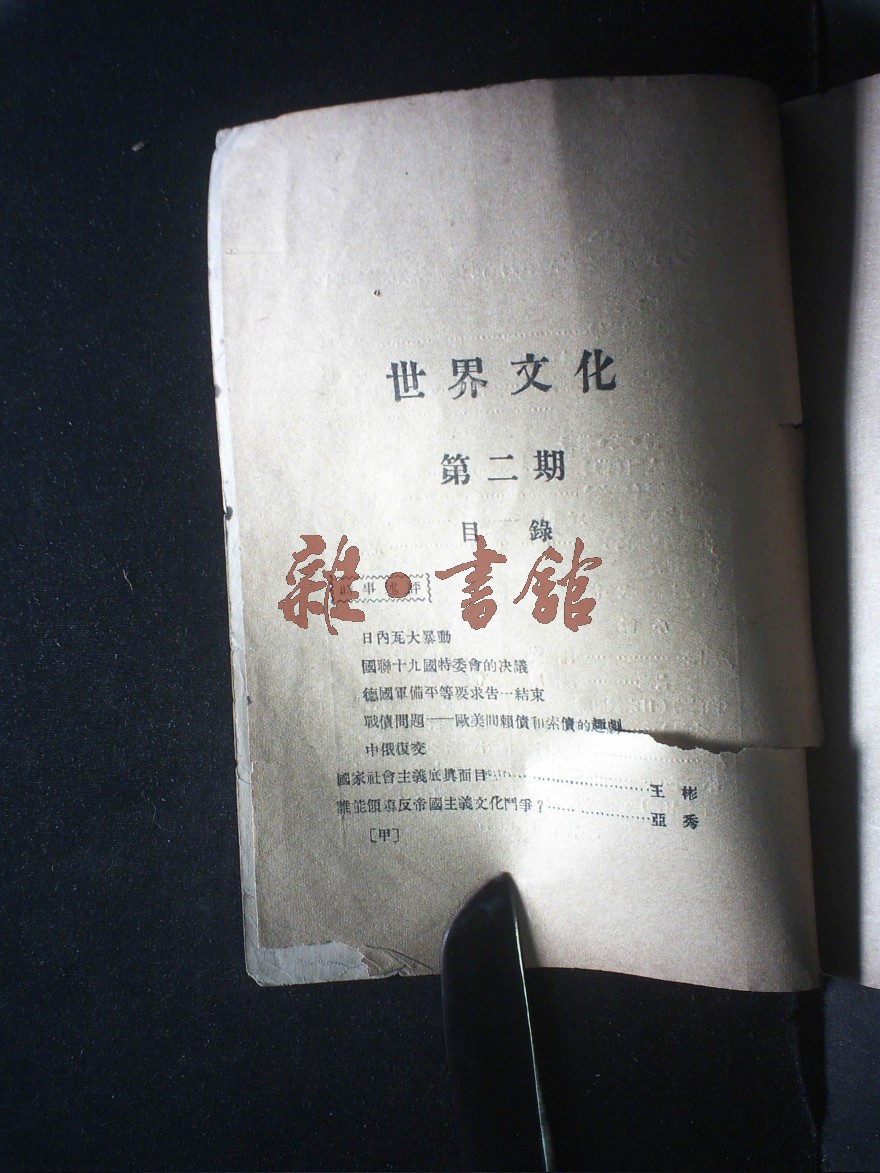 世界文化
第二期
目錄
雜·書館
時事述評
日內瓦大暴動
國聯十九國特委會的決議
德國軍備平等要求告一結束
戰債問題——歐美間賴債和索債的趣劇
中俄復交
國家社會主義底真面目……………………王彬
誰能領導反帝國主義文化鬥爭?………………亞秀
[甲]